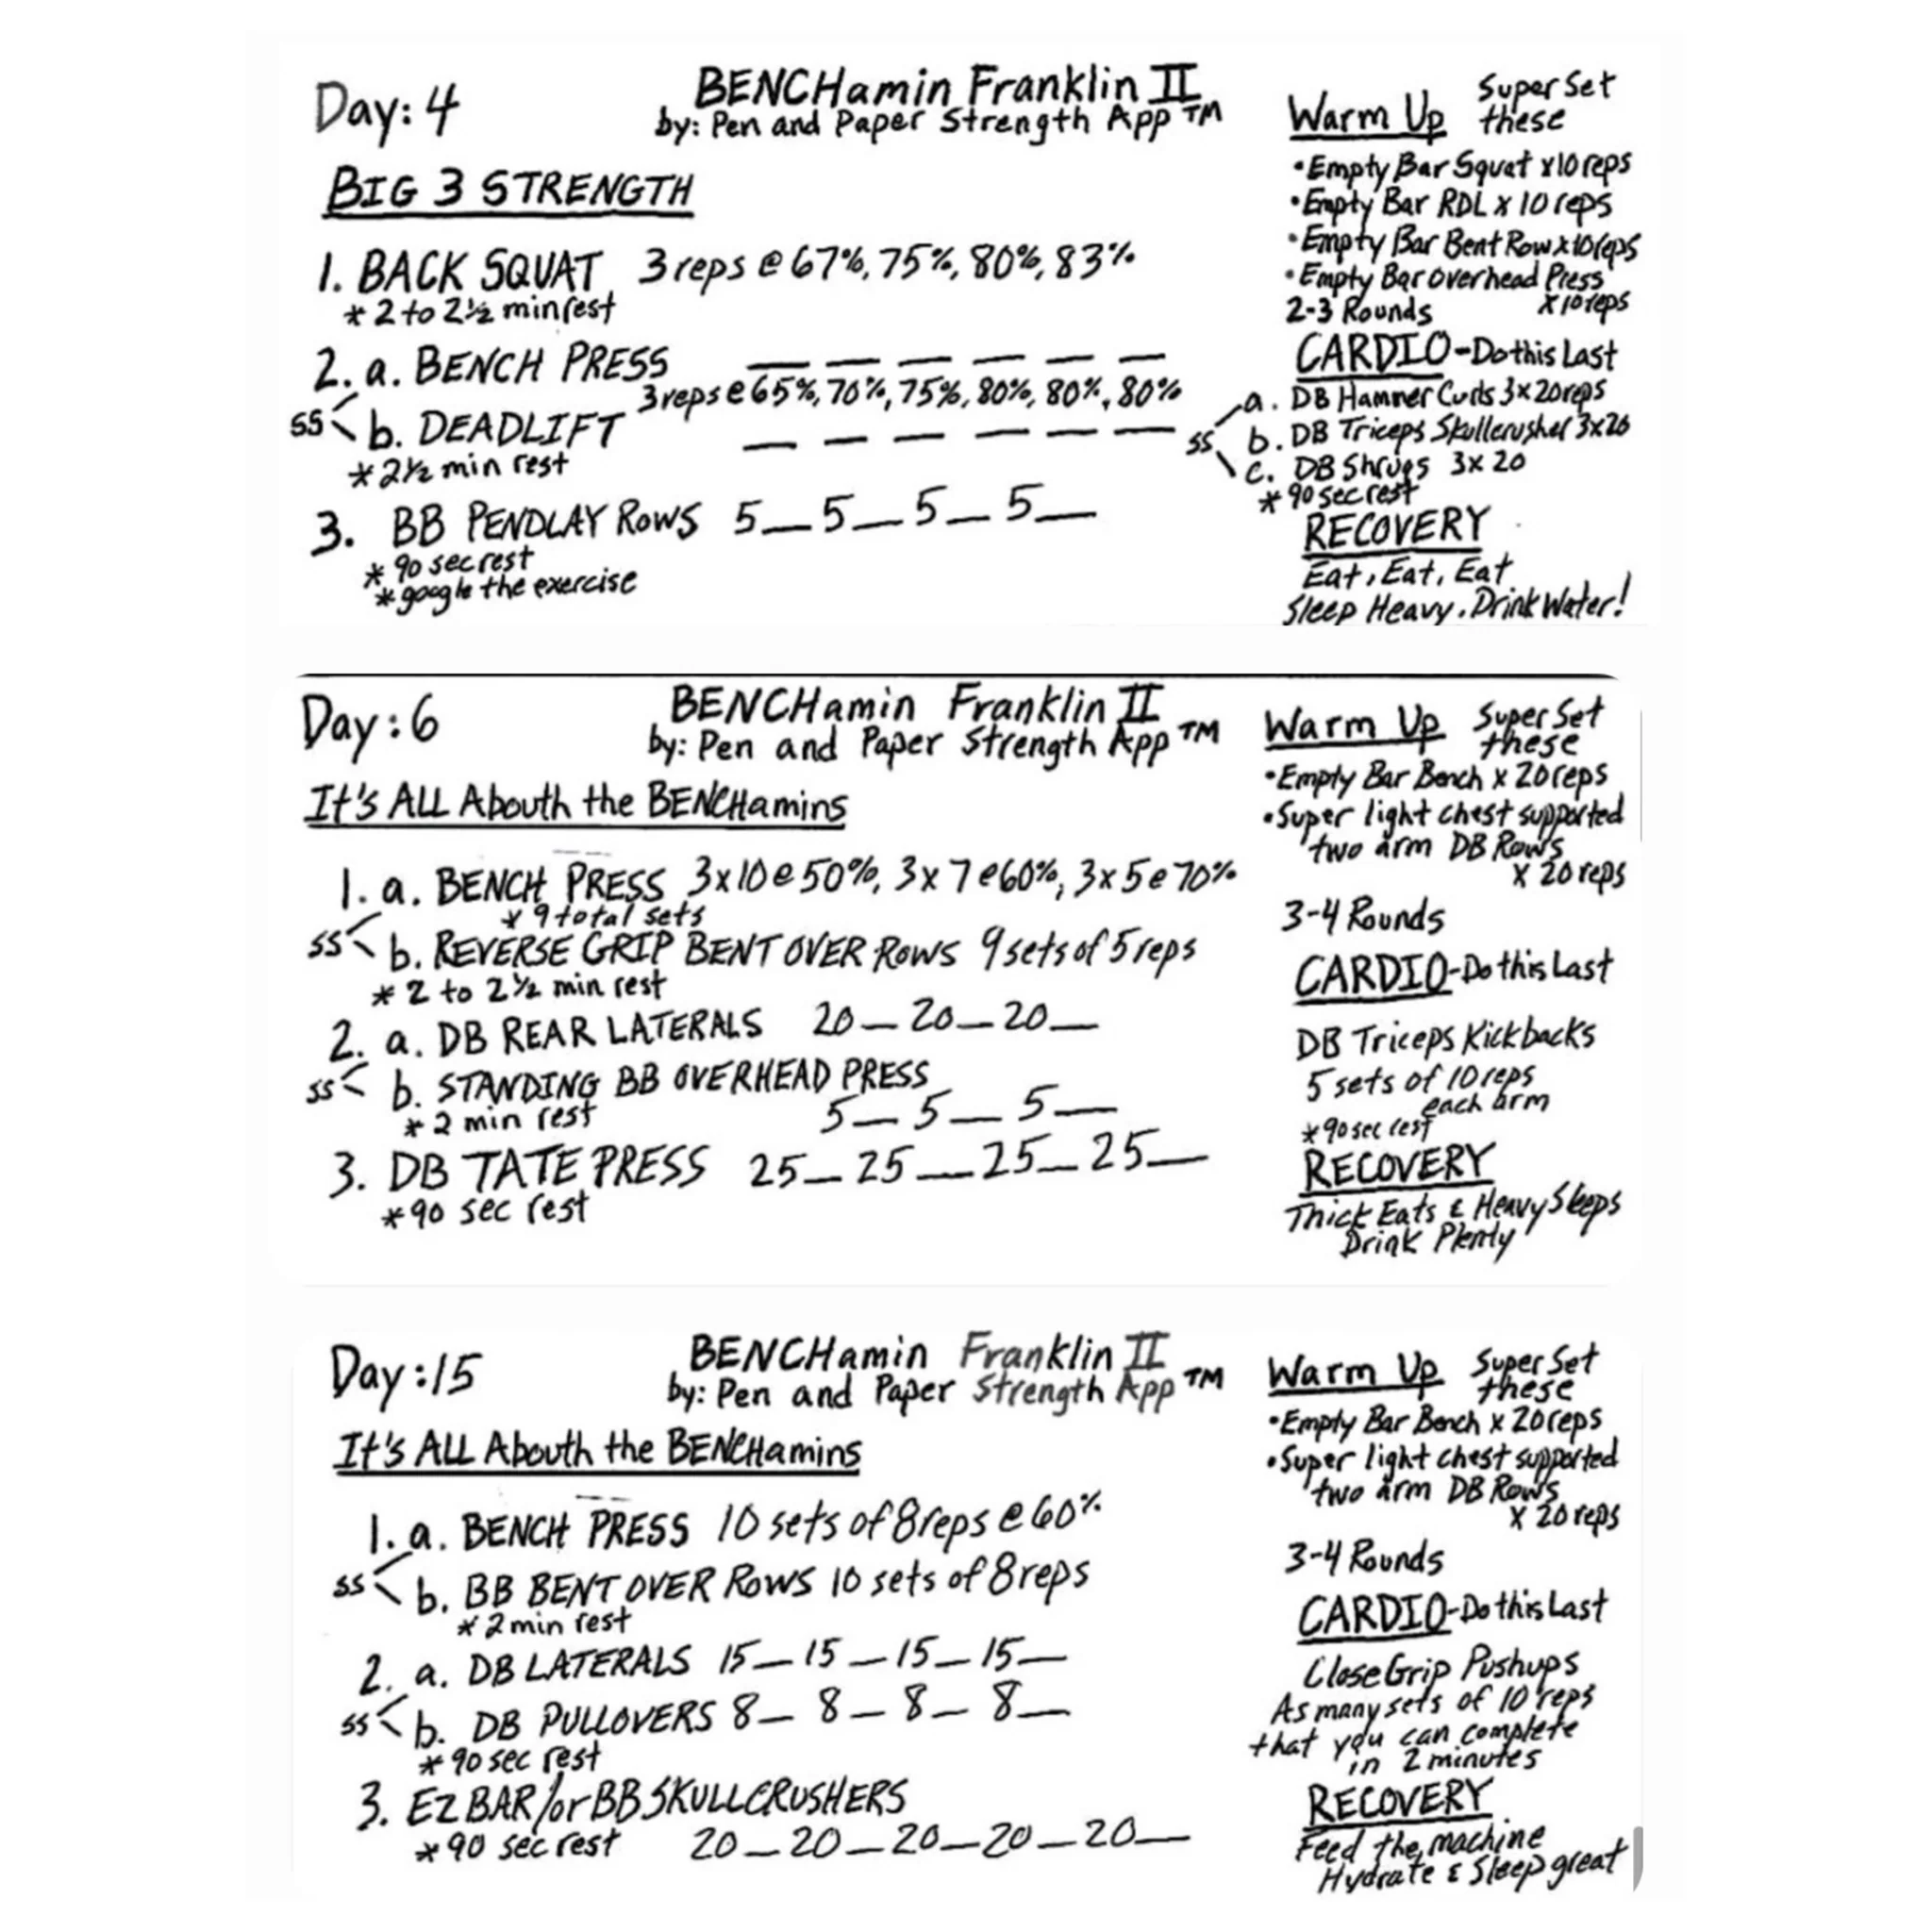 Day: 4
BENCHamin Franklin II
by: Pen and Paper Strength App TM
BIG 3 STRENGTH
1. BACK SQUAT 3 reps @ 67%, 75%, 80%, 83%
* 2 to 2½ min rest
2. a. BENCH PRESS
3 reps @ 65%, 70%, 75%, 80%, 80%, 80%
SS
b. DEADLIFT
* 2½ min rest
3. BB PENDLAY ROWS 5 5 5 5
* 90 sec rest
* google the exercise
Warm Up Super Set
these
• Empty Bar Squat x 10 reps
• Empty Bar RDL x 10 reps
• Empty Bar Bent Row x 10 reps
• Empty Bar Overhead Press
x 10 reps
2-3 Rounds
CARDIO - Do this Last
a. DB Hammer Curls 3x20 reps
SS b. DB Triceps Skullcrusher 3x20
c. DB Shrugs 3x20
* 90 sec rest
RECOVERY
Eat, Eat, Eat
Sleep Heavy. Drink Water!
Day: 6
BENCHamin Franklin II
by: Pen and Paper Strength App TM
It's ALL Abouth the BENCHamins
1. a. BENCH PRESS 3x10 @ 50%, 3x7 @ 60%, 3x5 @ 70%
* 9 total sets
SS
b. REVERSE GRIP BENT OVER ROWS 9 sets of 5 reps
* 2 to 2½ min rest
2. a. DB REAR LATERALS 20 20 20
SS
b. STANDING BB OVERHEAD PRESS
5 5 5
* 2 min rest
3. DB TATE PRESS 25 25 25 25
* 90 sec rest
Warm Up Super Set
these
• Empty Bar Bench x 20 reps
• Super light chest supported
two arm DB Rows
x 20 reps
3-4 Rounds
CARDIO - Do this Last
DB Triceps Kickbacks
5 sets of 10 reps
each arm
* 90 sec rest
RECOVERY
Thick Eats & Heavy Sleeps
Drink Plenty
Day: 15
BENCHamin Franklin II
by: Pen and Paper Strength App TM
It's ALL Abouth the BENCHamins
1. a. BENCH PRESS 10 sets of 8 reps @ 60%
SS
b. BB BENT OVER ROWS 10 sets of 8 reps
* 2 min rest
2. a. DB LATERALS 15 15 15 15
SS
b. DB PULLOVERS 8 8 8 8
* 90 sec rest
3. EZ BAR/or BB SKULLCRUSHERS
* 90 sec rest 20 20 20 20 20
Warm Up Super Set
these
• Empty Bar Bench x 20 reps
• Super light chest supported
two arm DB Rows
x 20 reps
3-4 Rounds
CARDIO - Do this Last
Close Grip Pushups
As many sets of 10 reps
that you can complete
in 2 minutes
RECOVERY
Feed the machine
Hydrate & Sleep great